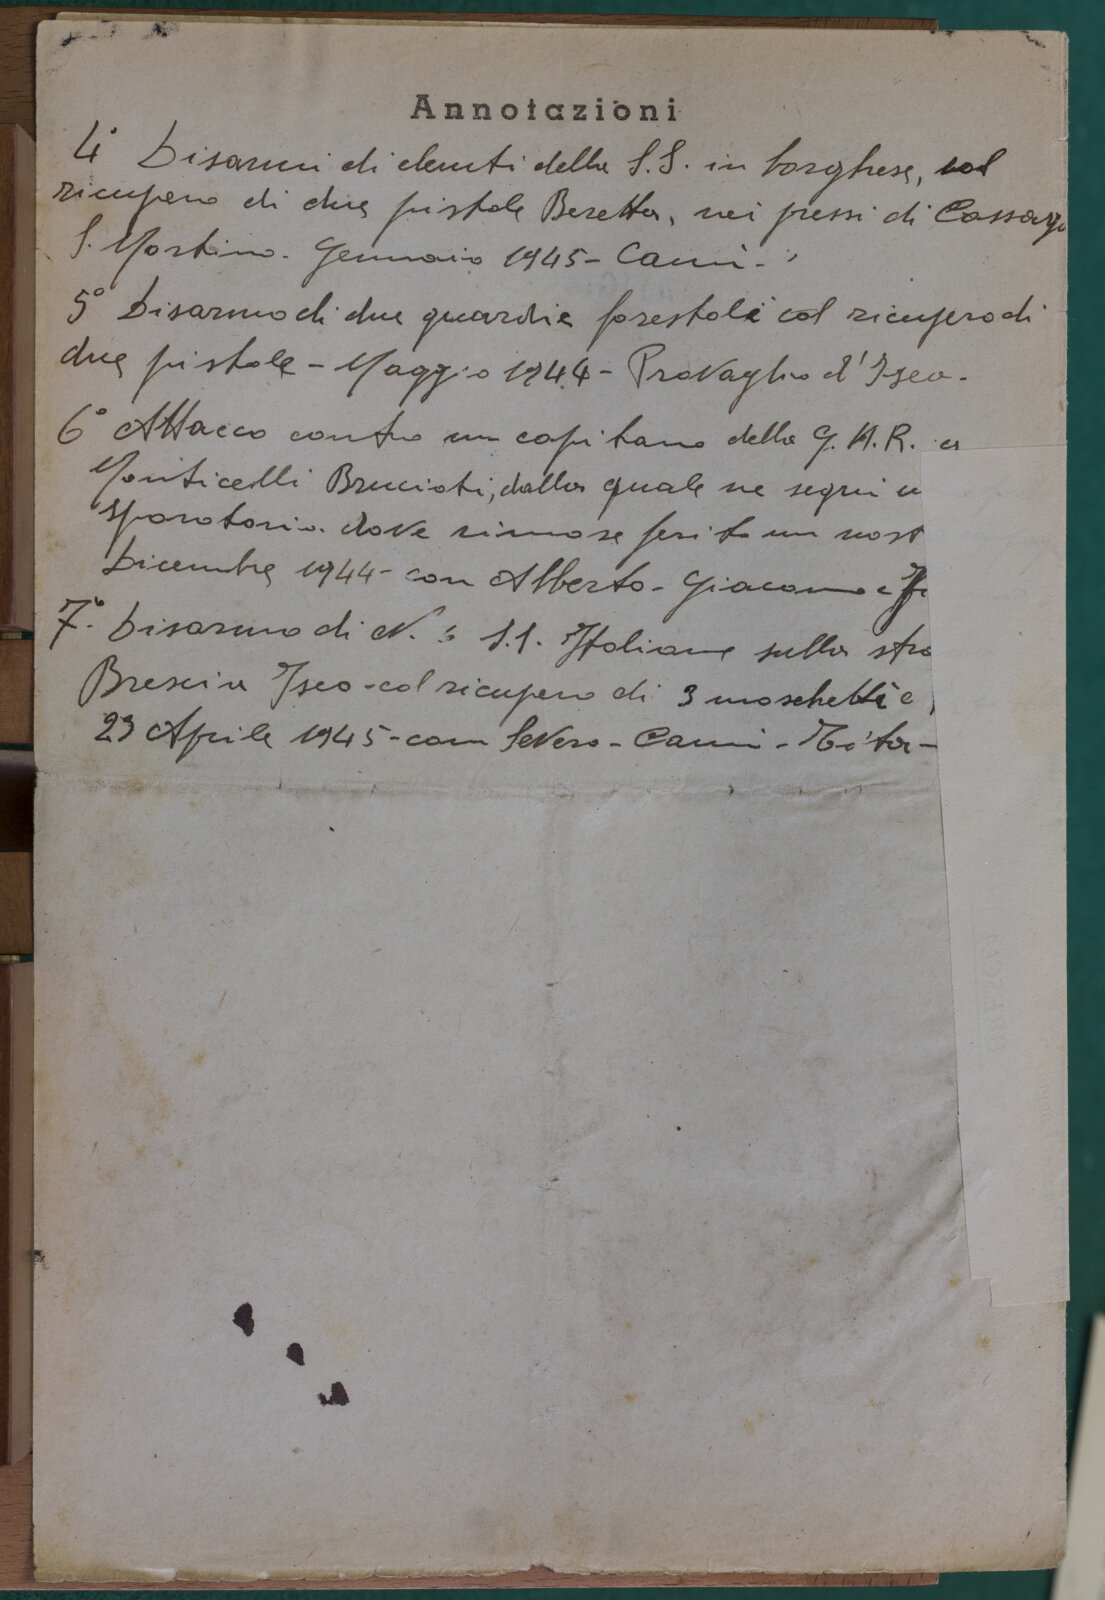 Annotazioni
4° Disarmi di elementi della S.S. in borghese, col
ricupero di due pistole Beretta, nei pressi di Cassago
S. Martino - Gennaio 1945 -
5° Disarmo di due guardie forestali col ricupero di
due pistole - Maggio 1944 - Provaglio d'Iseo -
6° Attacco contro un capitano della G.N.R. a
Monticelli Bruciati, dalla quale ne seguì u
sparatoria dove rimase ferito un nost
Dicembre 1944 - con Alberto - Giacomo e
7° Disarmo di N. S.S. Italiane sulla stra
Brescia Iseo - col ricupero di 3 moschetti e
23 Aprile 1945 - con Severo -